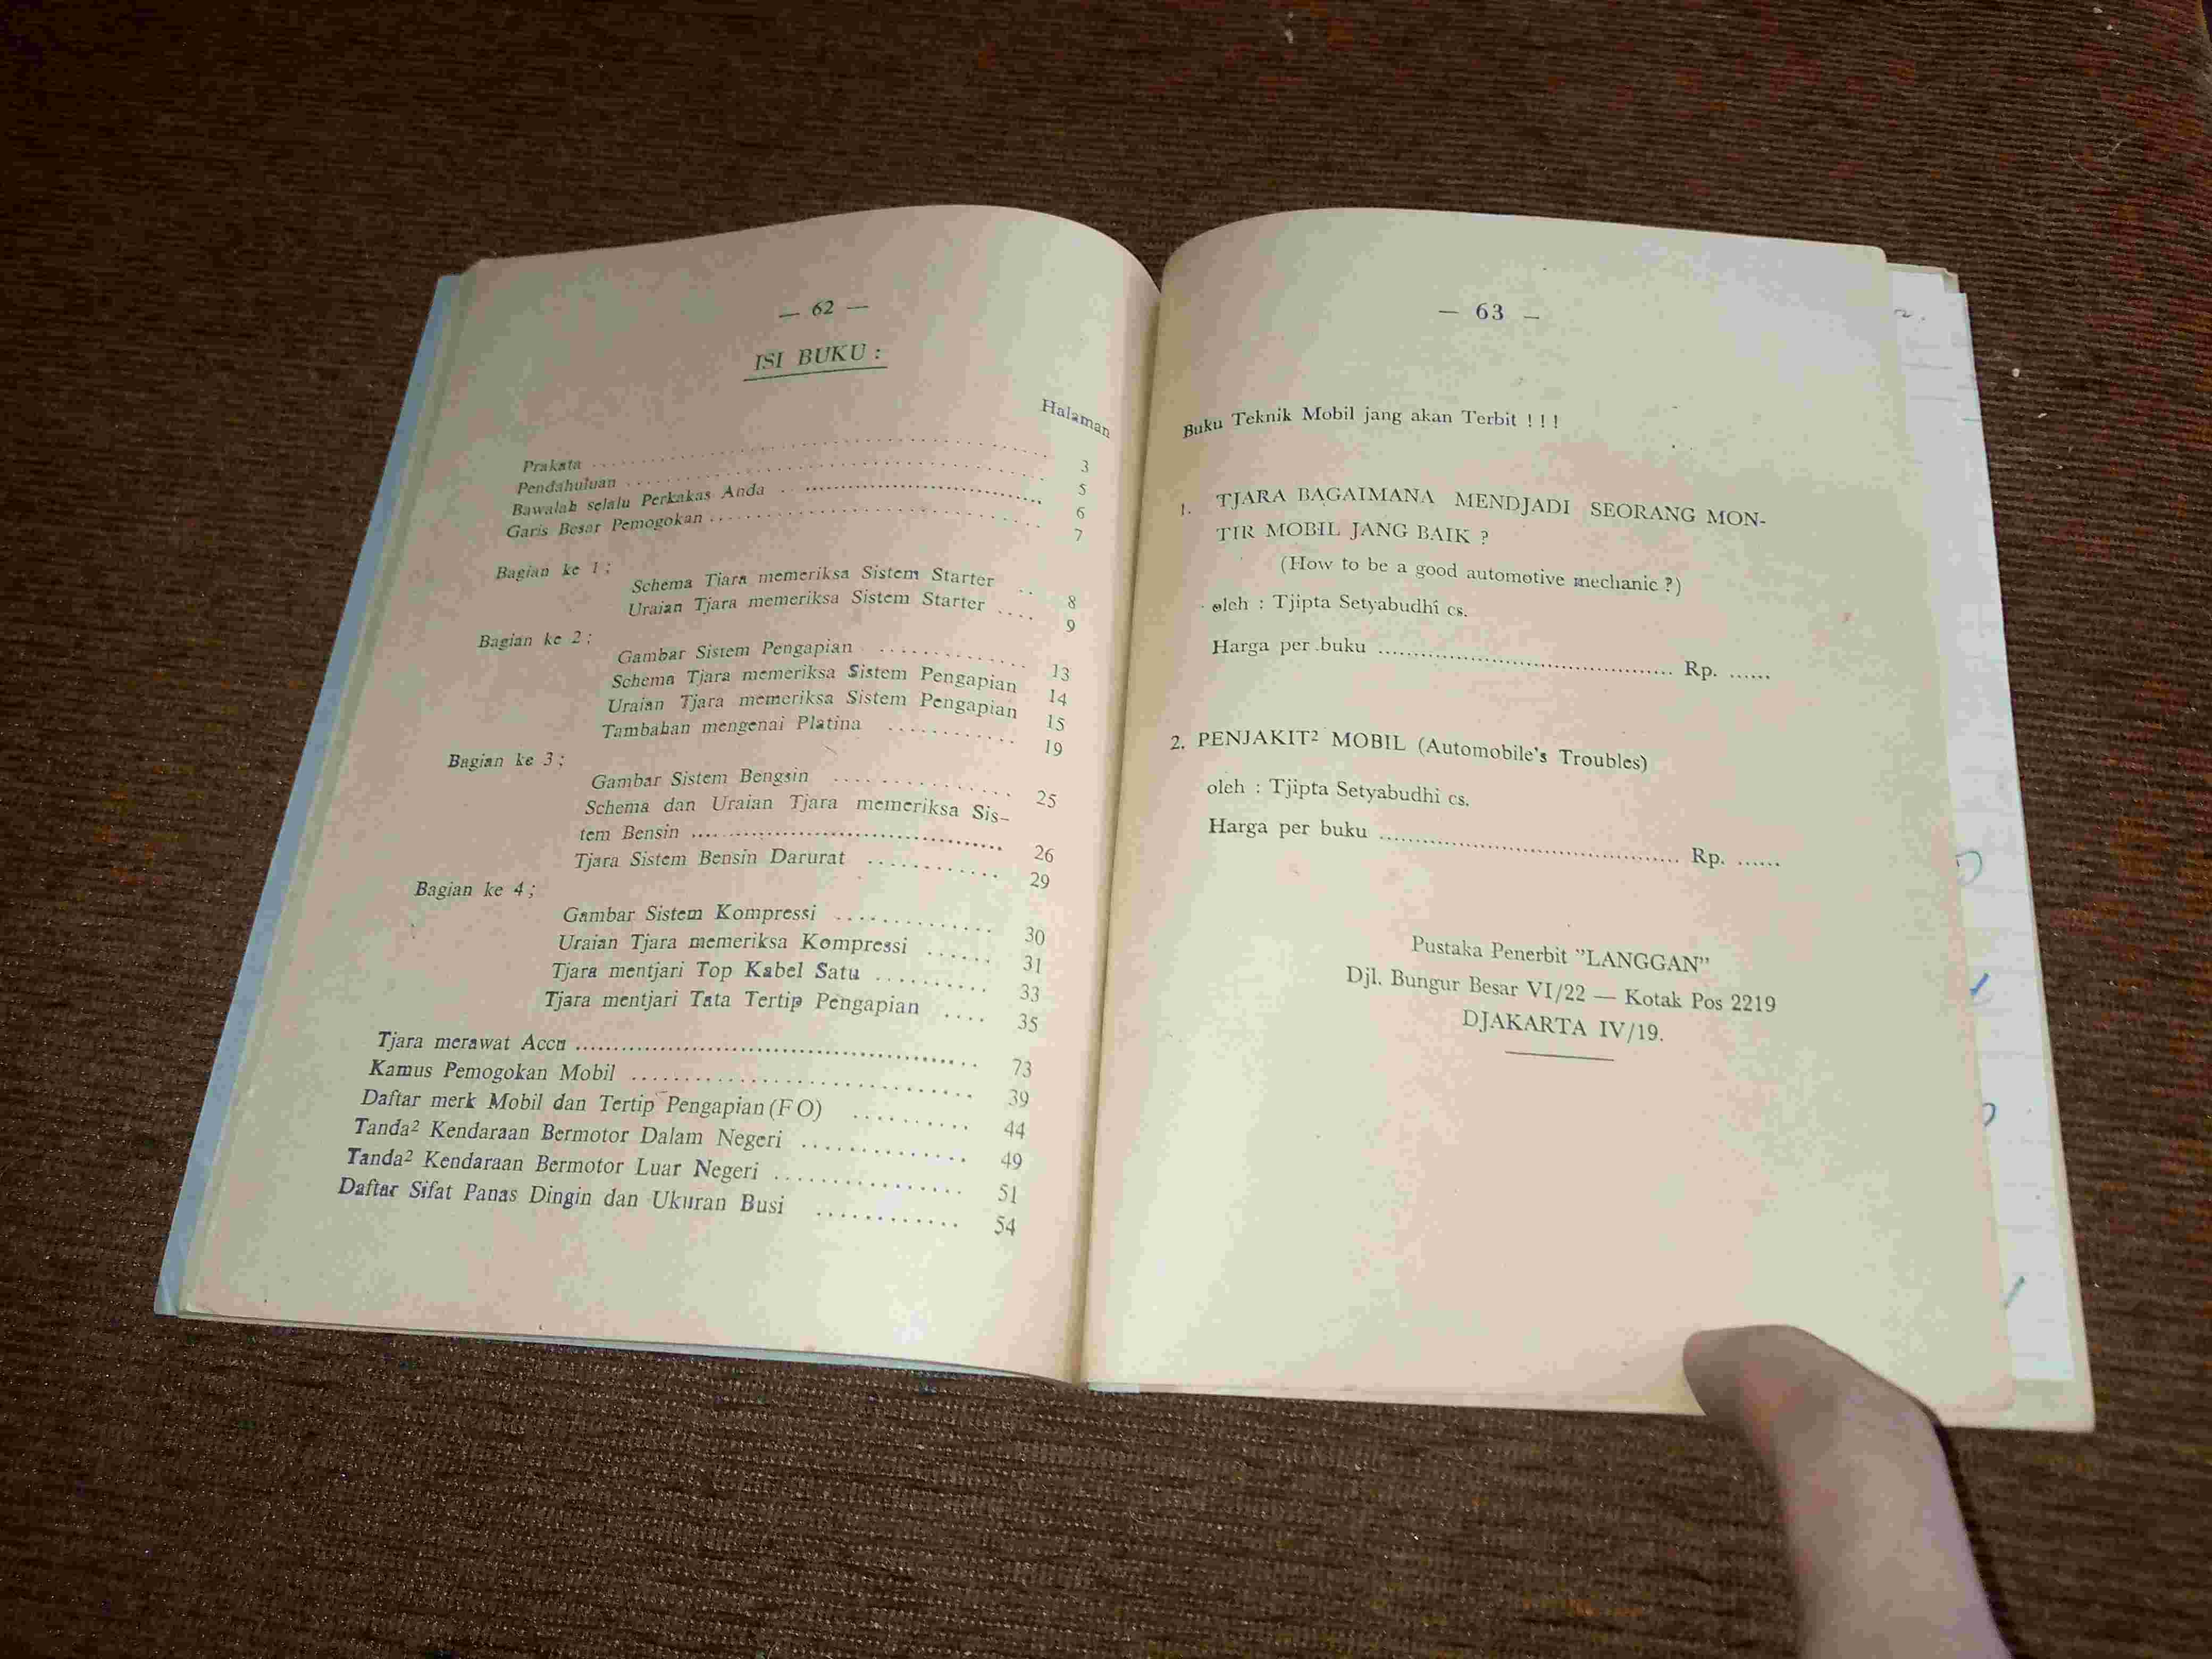 — 62 —
ISI BUKU :
Halaman
Prakata .......... 3
Pendahuluan .......... 5
Bawalah selalu Perkakas Anda .......... 6
Garis Besar Pemogokan .......... 7
Bagian ke 1 ;
Schema Tjara memeriksa Sistem Starter .. 8
Uraian Tjara memeriksa Sistem Starter .... 9
Bagian ke 2 ;
Gambar Sistem Pengapian .......... 13
Schema Tjara memeriksa Sistem Pengapian 14
Uraian Tjara memeriksa Sistem Pengapian 15
Tambahan mengenai Platina .......... 19
Bagian ke 3 ;
Gambar Sistem Bengsin .......... 25
Schema dan Uraian Tjara memeriksa Sis-
tem Bensin .......... 26
Tjara Sistem Bensin Darurat .......... 29
Bagian ke 4 ;
Gambar Sistem Kompressi .......... 30
Uraian Tjara memeriksa Kompressi ...... 31
Tjara mentjari Top Kabel Satu .......... 33
Tjara mentjari Tata Tertip Pengapian .... 35
Tjara merawat Accu .......... 73
Kamus Pemogokan Mobil .......... 39
Daftar merk Mobil dan Tertip Pengapian (F O) .......... 44
Tanda² Kendaraan Bermotor Dalam Negeri .......... 49
Tanda² Kendaraan Bermotor Luar Negeri .......... 51
Daftar Sifat Panas Dingin dan Ukuran Busi .......... 54
— 63 —
Buku Teknik Mobil jang akan Terbit ! ! !
1. TJARA BAGAIMANA MENDJADI SEORANG MON-
TIR MOBIL JANG BAIK ?
(How to be a good automotive mechanic ?)
oleh : Tjipta Setyabudhi cs.
Harga per buku .......... Rp. ......
2. PENJAKIT² MOBIL (Automobile's Troubles)
oleh : Tjipta Setyabudhi cs.
Harga per buku .......... Rp. ......
Pustaka Penerbit "LANGGAN"
Djl. Bungur Besar VI/22 — Kotak Pos 2219
DJAKARTA IV/19.